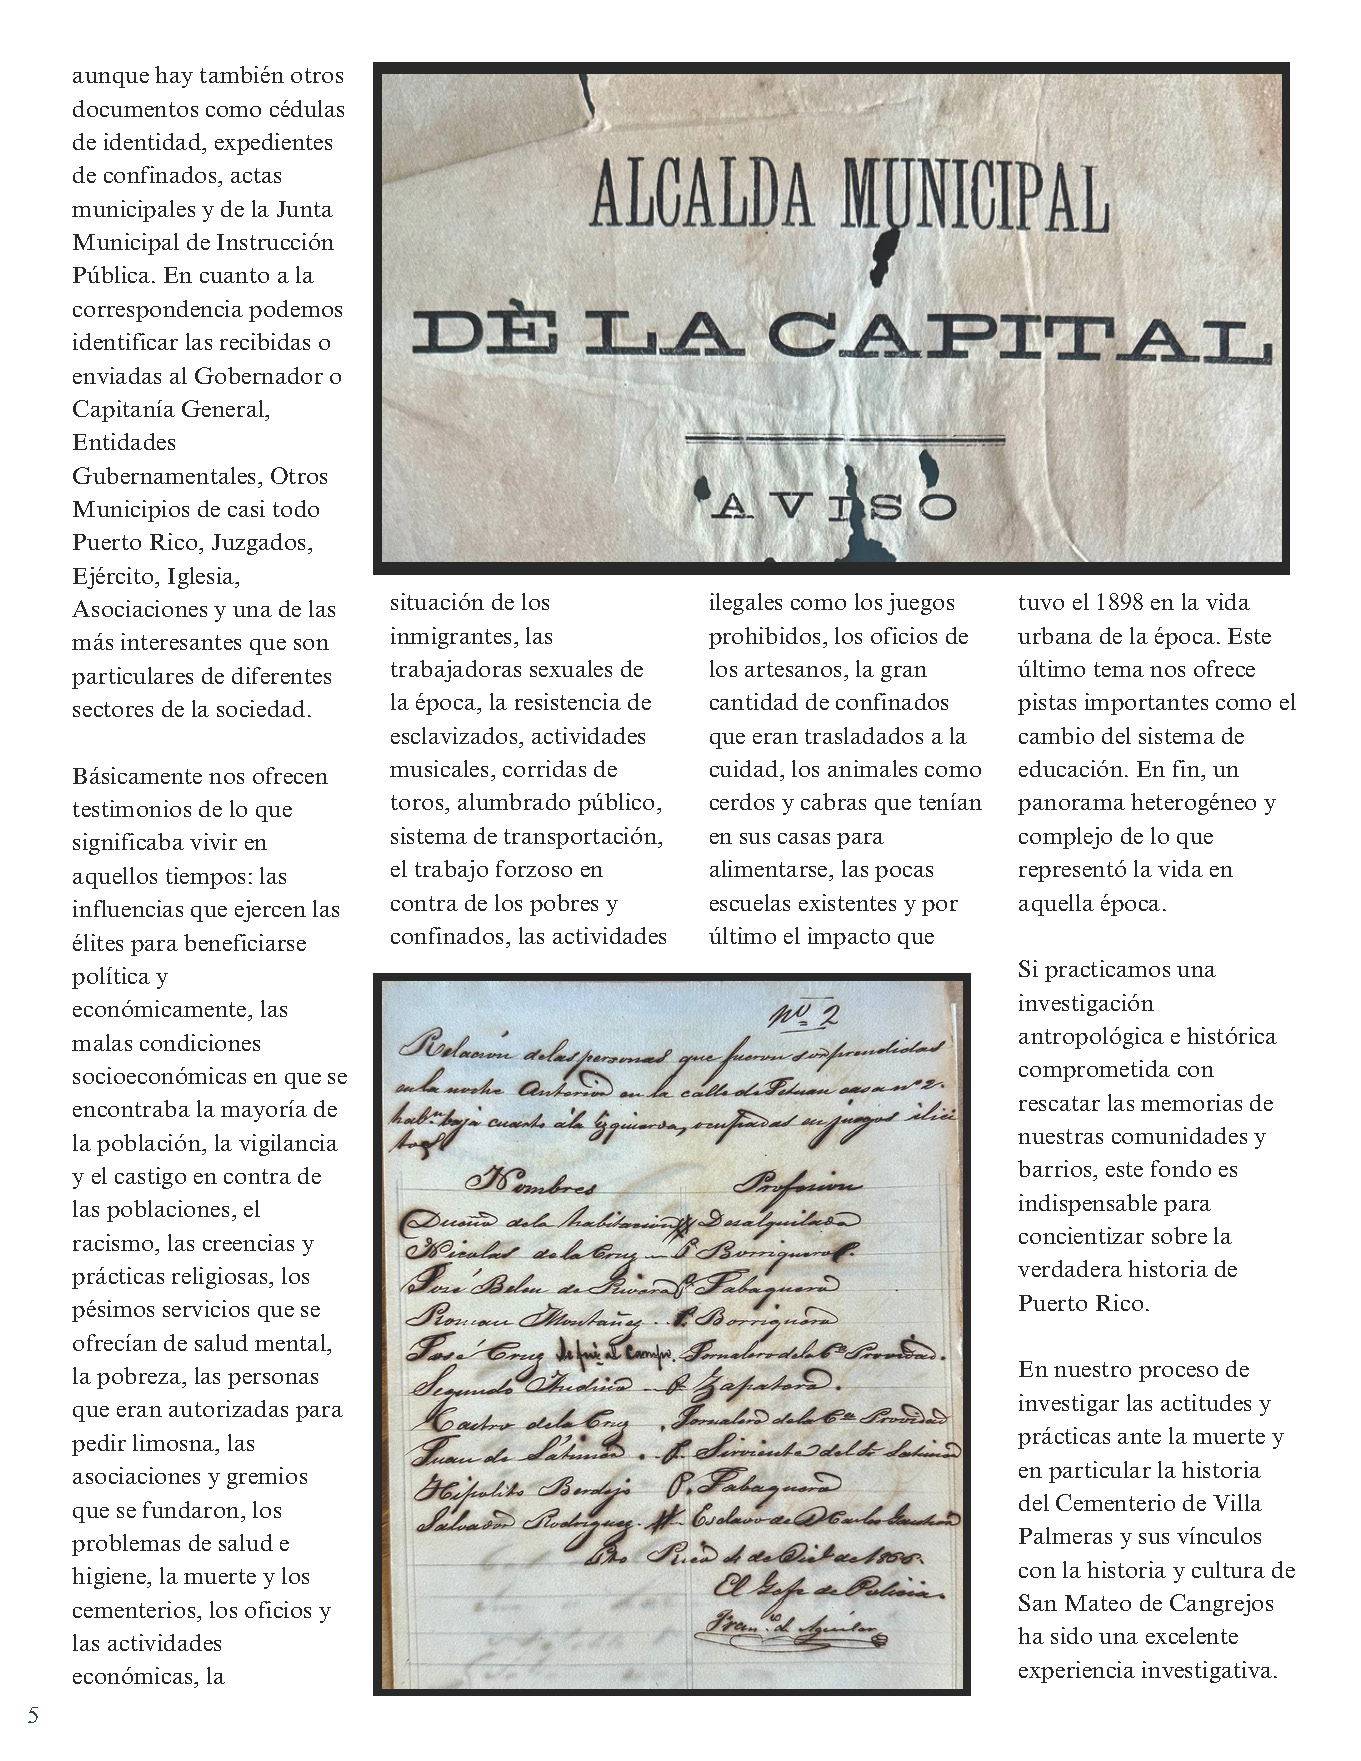 aunque hay también otros
documentos como cédulas
de identidad, expedientes
de confinados, actas
municipales y de la Junta
Municipal de Instrucción
Pública. En cuanto a la
correspondencia podemos
identificar las recibidas o
enviadas al Gobernador o
Capitanía General,
Entidades
Gubernamentales, Otros
Municipios de casi todo
Puerto Rico, Juzgados,
Ejército, Iglesia,
Asociaciones y una de las
más interesantes que son
particulares de diferentes
sectores de la sociedad.
Básicamente nos ofrecen
testimonios de lo que
significaba vivir en
aquellos tiempos: las
influencias que ejercen las
élites para beneficiarse
política y
económicamente, las
malas condiciones
socioeconómicas en que se
encontraba la mayoría de
la población, la vigilancia
y el castigo en contra de
las poblaciones, el
racismo, las creencias y
prácticas religiosas, los
pésimos servicios que se
ofrecían de salud mental,
la pobreza, las personas
que eran autorizadas para
pedir limosna, las
asociaciones y gremios
que se fundaron, los
problemas de salud e
higiene, la muerte y los
cementerios, los oficios y
las actividades
económicas, la
ALCALDA MUNICIPAL
DE LA CAPITAL
AVISO
situación de los
inmigrantes, las
trabajadoras sexuales de
la época, la resistencia de
esclavizados, actividades
musicales, corridas de
toros, alumbrado público,
sistema de transportación,
el trabajo forzoso en
contra de los pobres y
confinados, las actividades
ilegales como los juegos
prohibidos, los oficios de
los artesanos, la gran
cantidad de confinados
que eran trasladados a la
cuidad, los animales como
cerdos y cabras que tenían
en sus casas para
alimentarse, las pocas
escuelas existentes y por
último el impacto que
tuvo el 1898 en la vida
urbana de la época. Este
último tema nos ofrece
pistas importantes como el
cambio del sistema de
educación. En fin, un
panorama heterogéneo y
complejo de lo que
representó la vida en
aquella época.
Si practicamos una
investigación
antropológica e histórica
comprometida con
rescatar las memorias de
nuestras comunidades y
barrios, este fondo es
indispensable para
concientizar sobre la
verdadera historia de
Puerto Rico.
En nuestro proceso de
investigar las actitudes y
prácticas ante la muerte y
en particular la historia
del Cementerio de Villa
Palmeras y sus vínculos
con la historia y cultura de
San Mateo de Cangrejos
ha sido una excelente
experiencia investigativa.
Nº 2
Relación de las personas que fueron sorprendidas
en la noche Anterior en la calle de Tetuan casa nº 2.
habn. baja cuarto á la Izquierda, ocupadas en juegos ilici
tos
Nombres Profesion
Dueño de la habitacion Desalquilada
Nicolas de la Cruz Borriquero
José Belen de Rivera Tabaquero
Roman Montañez Borriquero
José Cruz se fué al Campo. Jornalero de la Provedad.
Segundo Andino Zapatero.
Castro de la Cruz Jornalero de la Provedad
Juan de Latimer Sirviente del Sr Latimer
Hipolito Berdejo P. Tabaquero
Salvador Rodriguez Esclavo de D Carlos
Pto Rico 4 de Dice de 1866.
El Gefe de Policia.
Franco de Aguilar
5